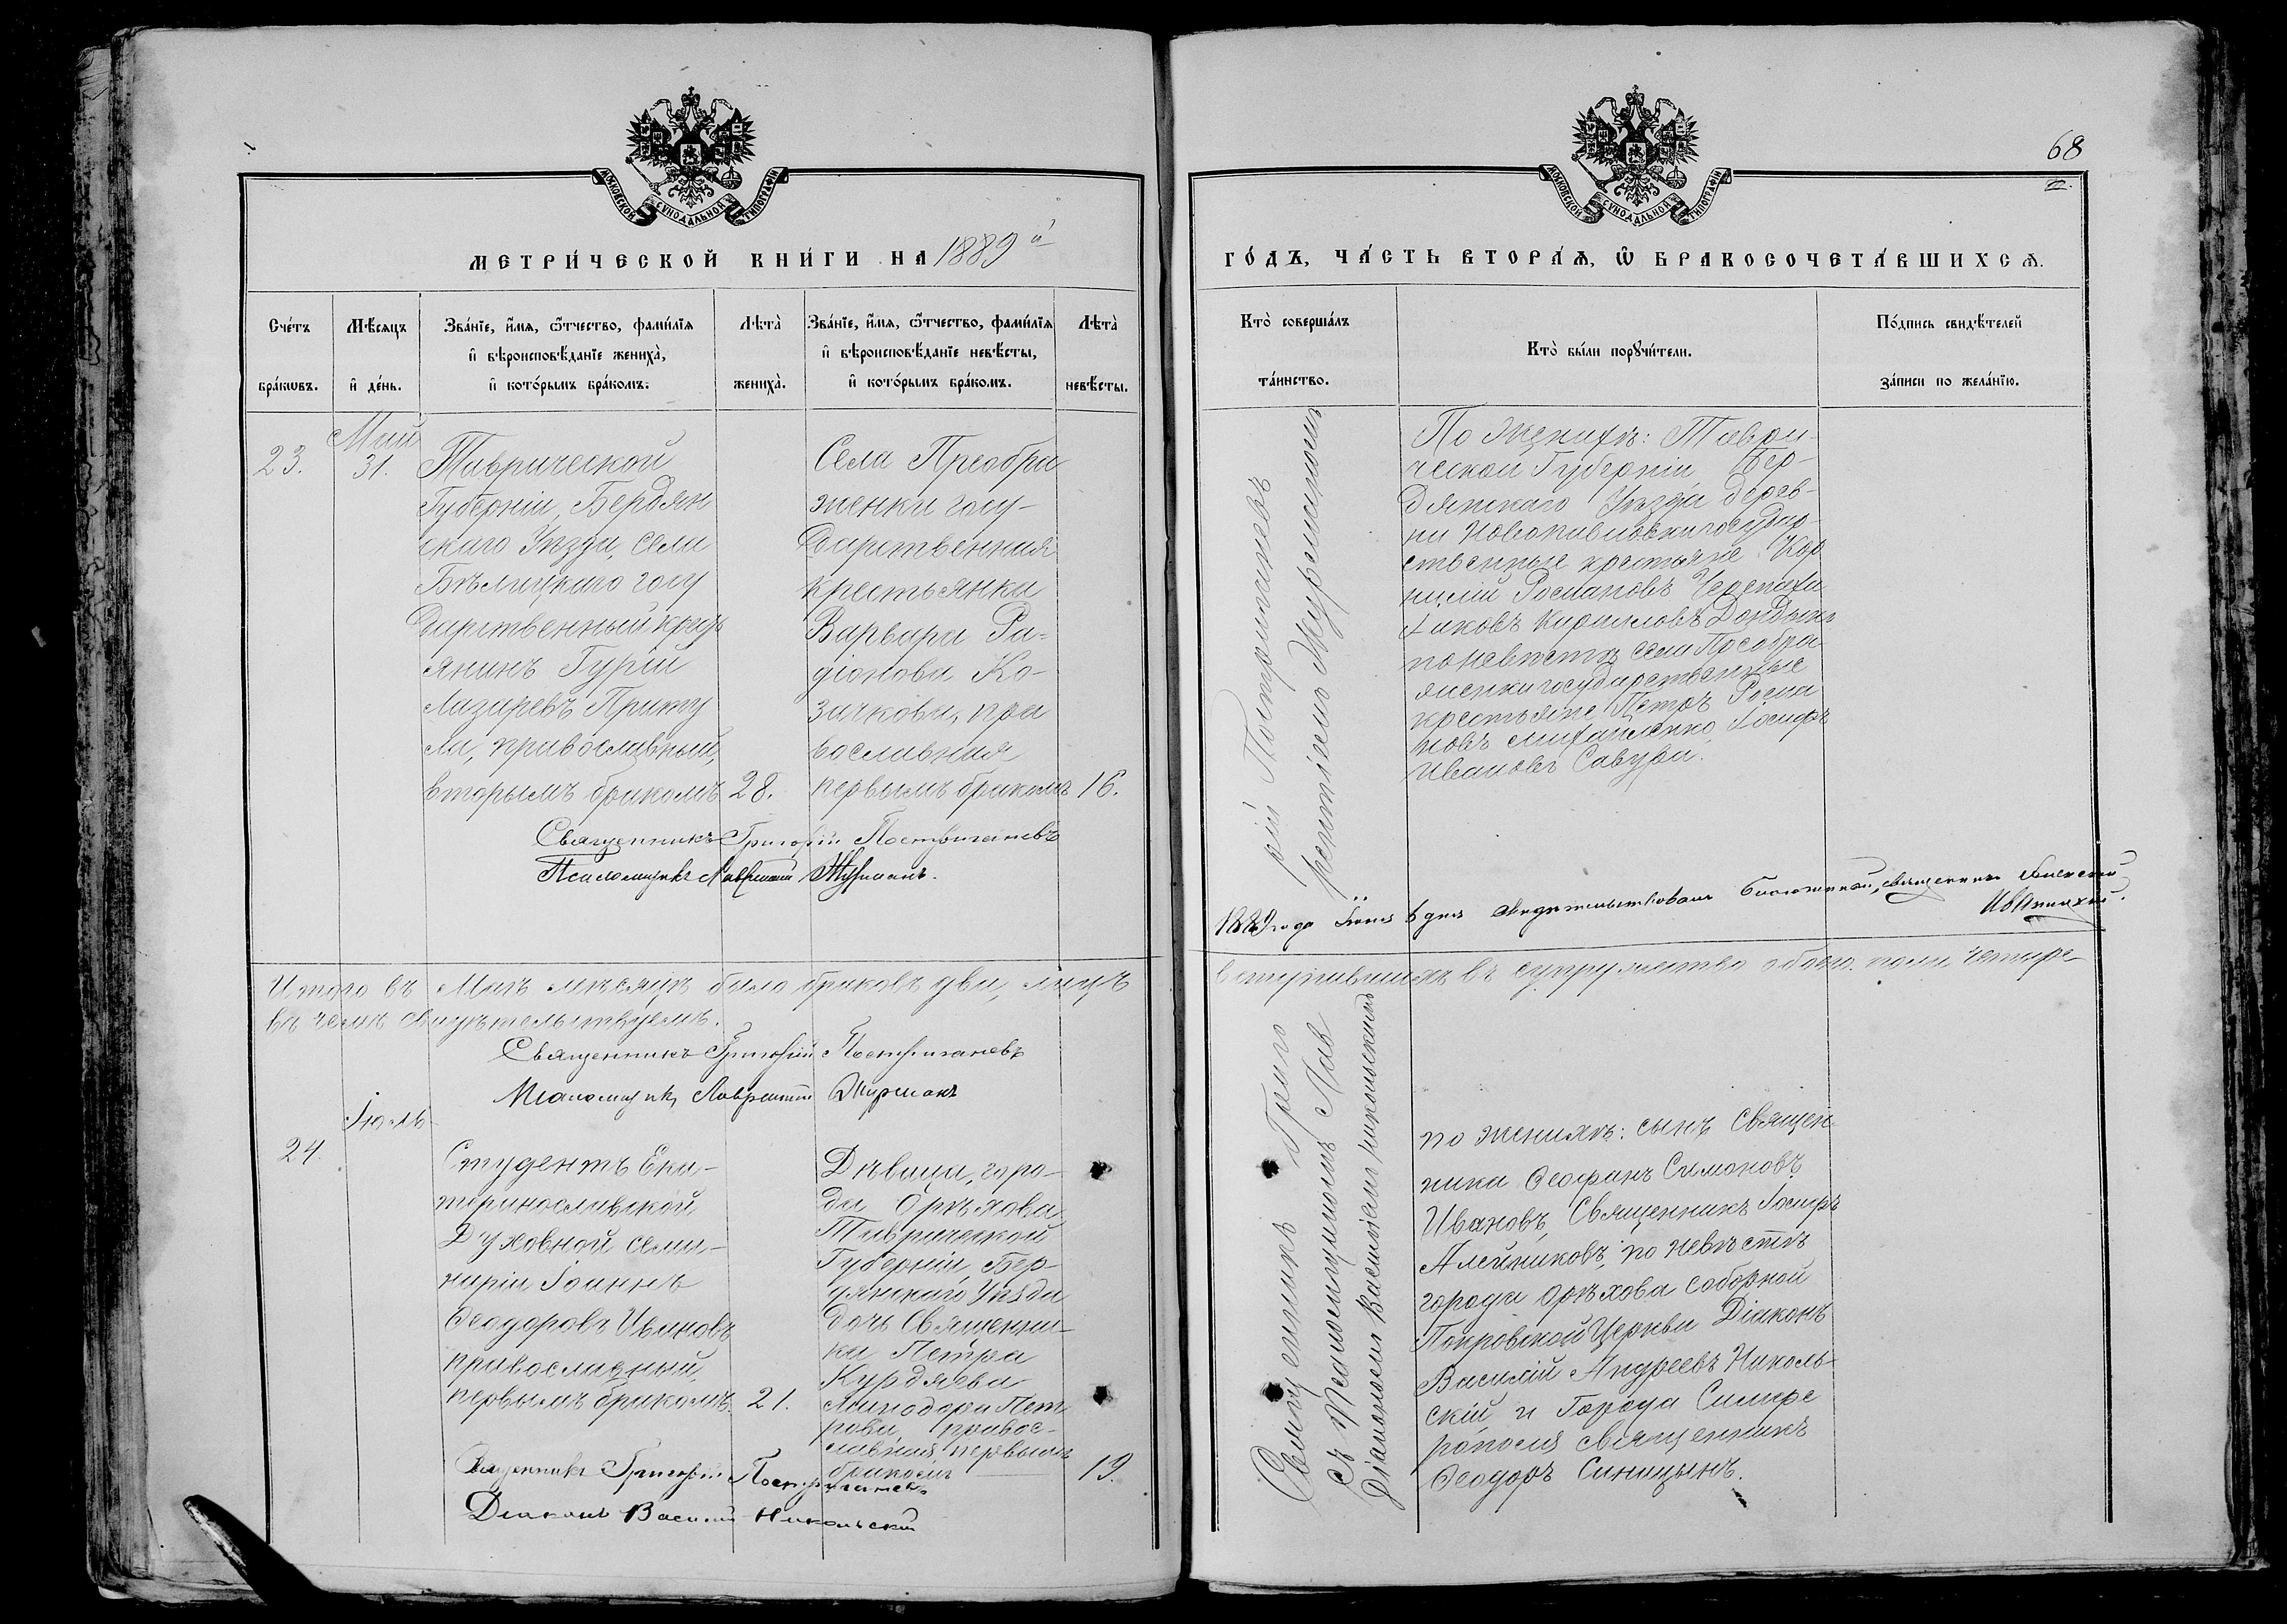 МОСКОВСКОЙ СѴНОДАЛЬНОЙ ТИПОГРАФІИ
МЕТРИ́ЧЕСКОЙ КНИ́ГИ НА 1889 й
Сче́тъ бра́кѡвъ.
Мѣ́сяцъ и҆ де́нь.
Зва́нїе, и҆́мѧ, ѻ҆́тчество, фамилїѧ
и҆ вѣроисповѣ́данїе жениха̀,
и҆ кото́рымъ бра́комъ.
Лѣта̀ жениха̀.
Зва́нїе, и҆́мѧ, ѻ҆́тчество, фамилїѧ
и҆ вѣроисповѣ́данїе невѣ́сты,
и҆ кото́рымъ бра́комъ.
Лѣта̀ невѣ́сты.
23.
Май
31.
Таврической
Губерніи, Бердян
скаго Уѣзда, села
Бѣлицкаго госу
дарственный кресть
янинъ Гурій
Лазаревъ Приту
ла, православный,
вторымъ бракомъ
28.
Села Преобра
женки госу-
дарственная
крестьянка
Варвара Ра-
діонова Ко-
зачкова, пра
вославная
первымъ бракомъ
16.
Священникъ Григорій Постригачевъ
Псаломщикъ Лаврентій Журманъ.
Итого въ Маѣ мѣсяцѣ было браковъ два, лицъ
въ чемъ свидѣтельствуемъ.
Священникъ Григорій Постригачевъ
Псаломщикъ Лаврентій Журманъ
Іюль
24.
Студентъ Ека-
теринославской
Духовной семи-
наріи Іоаннъ
Ѳеодоровъ Ивановъ
православный,
первымъ бракомъ.
21.
Дѣвица, горо-
да Орѣхова
Таврической
Губерніи, Бер-
дянскаго Уѣзда
дочь Священни-
ка Петра
Курдяева
Минодора Пет
рова, правос-
лавная, первымъ
бракомъ
19.
Священникъ Григорій Постригачевъ
Діаконъ Василій Никольскій
68
МОСКОВСКОЙ СѴНОДАЛЬНОЙ ТИПОГРАФІИ
ГО́ДЪ, ЧА́СТЬ ВТОРА́Ѧ, Ѡ҆ БРАКОСОЧЕТА́ВШИХСѦ.
Кто̀ соверша́лъ та́инство.
Кто̀ бы́ли порꙋчи́тели.
По́дпись свидѣ́телей за́писи по жела́нїю.
рій Постригачевъ
рентіемъ Журманомъ
По Женихѣ: Таври-
ческой Губерніи Бер-
дянскаго Уѣзда дерев-
ни Новопавловки государ-
ственные крестьяне Кор
нилій Романовъ
Іаковъ Кирилловъ
по невѣстѣ села Преобра
женки государственные
крестьяне Петръ Рома
новъ Михайленко, Іосифъ
Ивановъ Савура.
1889 года Іюня дня свидѣтельствовалъ Благочинный, священникъ
вступившихъ въ супружество обоего пола четыре
Священникъ Григо
съ Псаломщикомъ Лав
Діакономъ Василіемъ Никольскимъ
по женихѣ: сынъ Священ-
ника Ѳеофанъ Симоновъ
Ивановъ, Священникъ Іосифъ
Алейниковъ; по невѣстѣ
города Орѣхова соборной
Покровской Церкви Діаконъ
Василій Андреевъ Николь-
скій и Города Симфе
рополя священникъ
Ѳеодоръ Синицынъ.